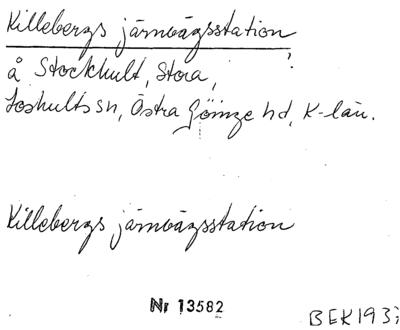 Killebergs järnvägsstation,
å Stockhult, Stora,
Loshults sn, Östra Göinge hd, K-län.
Killebergs järnvägsstation
Nr 13582
BEK193